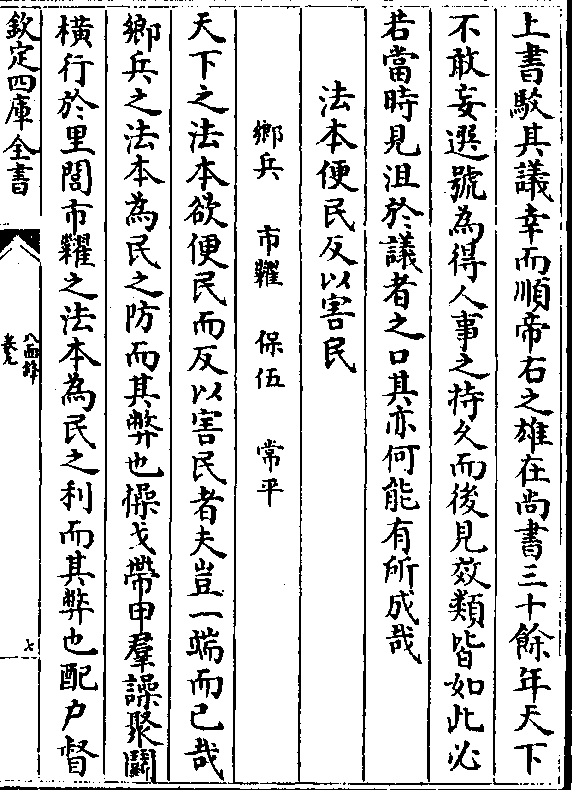 上書駮其議幸而順帝右之雄在尚書三十餘年天下
不敢妄選號為得人事之持久而後見效類皆如此必
若當時見沮於議者之口其亦何能有所成哉
法本便民反以害民
鄉兵 市糴 保伍 常平
天下之法本欲便民而反以害民者夫豈一端而已哉
鄉兵之法本為民之防而其弊也懆戈帶甲羣譟聚鬭
橫行於里閭市糴之法本為民之利而其弊也配户督
欽定四庫全書
八面鋒
卷九
七